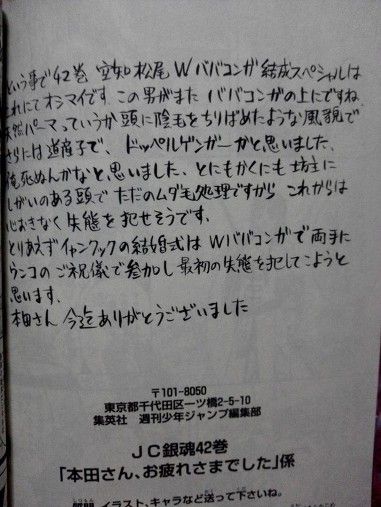 という事で42巻 空知 松尾 Wババコンガ 結成スペシャルは
これにてオシマイです。この男がまた ババコンガの上にですね
天然パーマっていうか頭に陰毛をちりばめたような風貌で
さらには道産子で、ドッペルゲンガーかと思いました。
俺死ぬんかなと思いました。とにもかくにも坊主に
しがいのある頭で ただのムダ毛処理ですから これからは
心おきなく 失態を犯せそうです。
とりあえずイャンクックの結婚式は Wババコンガで両手に
ウンコのご祝儀で参加し 最初の失態を犯してこようと
思います。
本田さん 今迄ありがとうございました
〒101-8050
東京都千代田区一ツ橋2-5-10
集英社 週刊少年ジャンプ編集部
JC銀魂42巻
「本田さん、お疲れさまでした」係
イラスト、キャラなど送って下さいね。